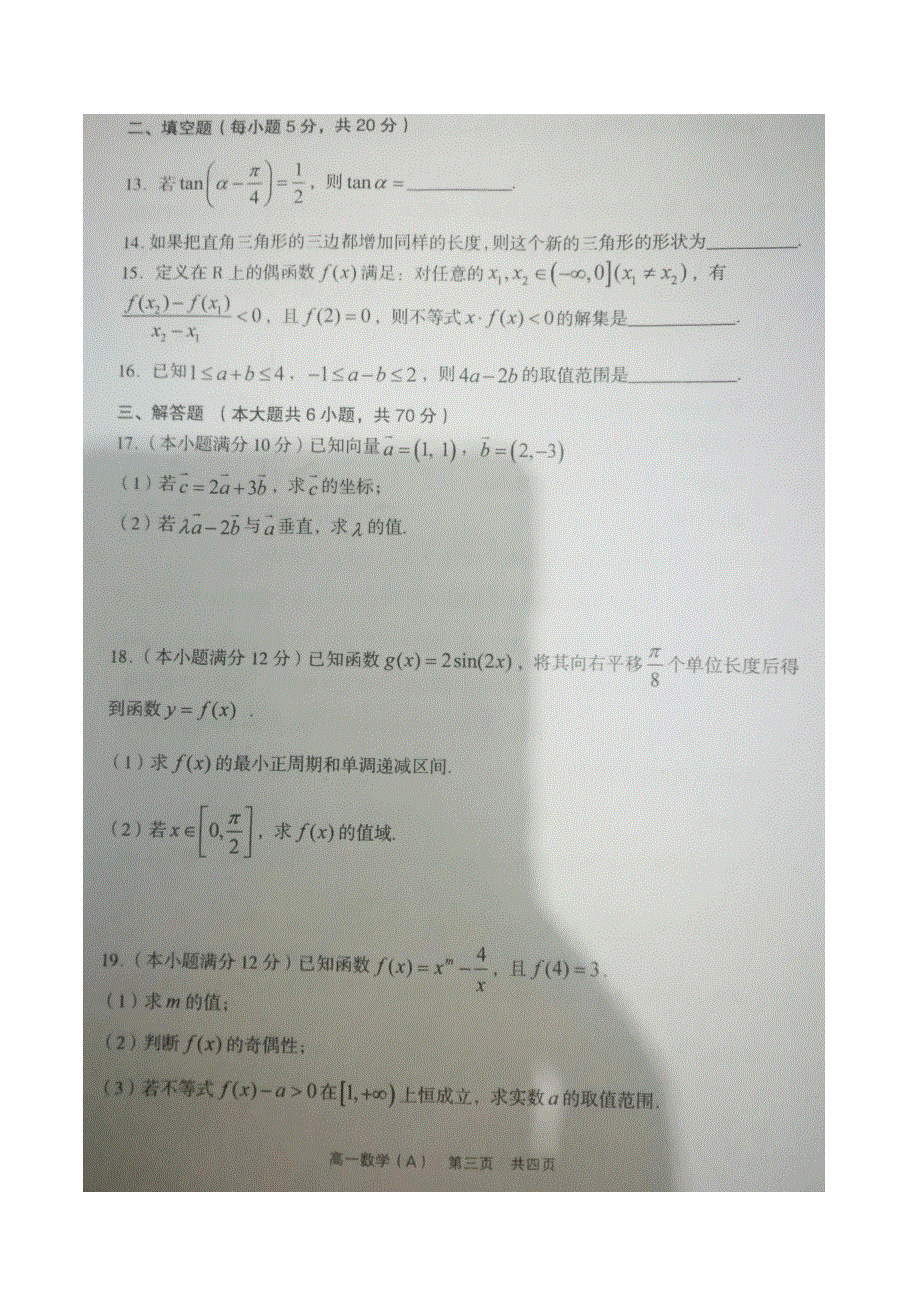 二、填空题（每小题5分，共20分）
13. 若 tan(α − π/4) = 1/2，则 tan α = ___________.
14. 如果把直角三角形的三边都增加同样的长度,则这个新的三角形的形状为__________.
15. 定义在 R 上的偶函数 f(x) 满足：对任意的 x₁, x₂ ∈ (−∞, 0](x₁ ≠ x₂)，有
(f(x₂) − f(x₁))/(x₂ − x₁) < 0，且 f(2) = 0，则不等式 x · f(x) < 0 的解集是____________.
16. 已知 1 ≤ a+b ≤ 4，−1 ≤ a−b ≤ 2，则 4a−2b 的取值范围是____________.
三、解答题 （本大题共6小题，共70分）
17.（本小题满分10分）已知向量 a⃗ = (1, 1)，b⃗ = (2, −3)
（1）若 c⃗ = 2a⃗ + 3b⃗，求 c⃗ 的坐标;
（2）若 λa⃗ − 2b⃗ 与 a⃗ 垂直，求 λ 的值.
18.（本小题满分12分）已知函数 g(x) = 2sin(2x)，将其向右平移 π/8 个单位长度后得
到函数 y = f(x) .
（1）求 f(x) 的最小正周期和单调递减区间.
（2）若 x ∈ [0, π/2]，求 f(x) 的值域.
19.（本小题满分12分）已知函数 f(x) = xᵐ − 4/x，且 f(4) = 3.
（1）求 m 的值;
（2）判断 f(x) 的奇偶性;
（3）若不等式 f(x) − a > 0 在 [1, +∞) 上恒成立，求实数 a 的取值范围.
高一数学（A） 第三页 共四页